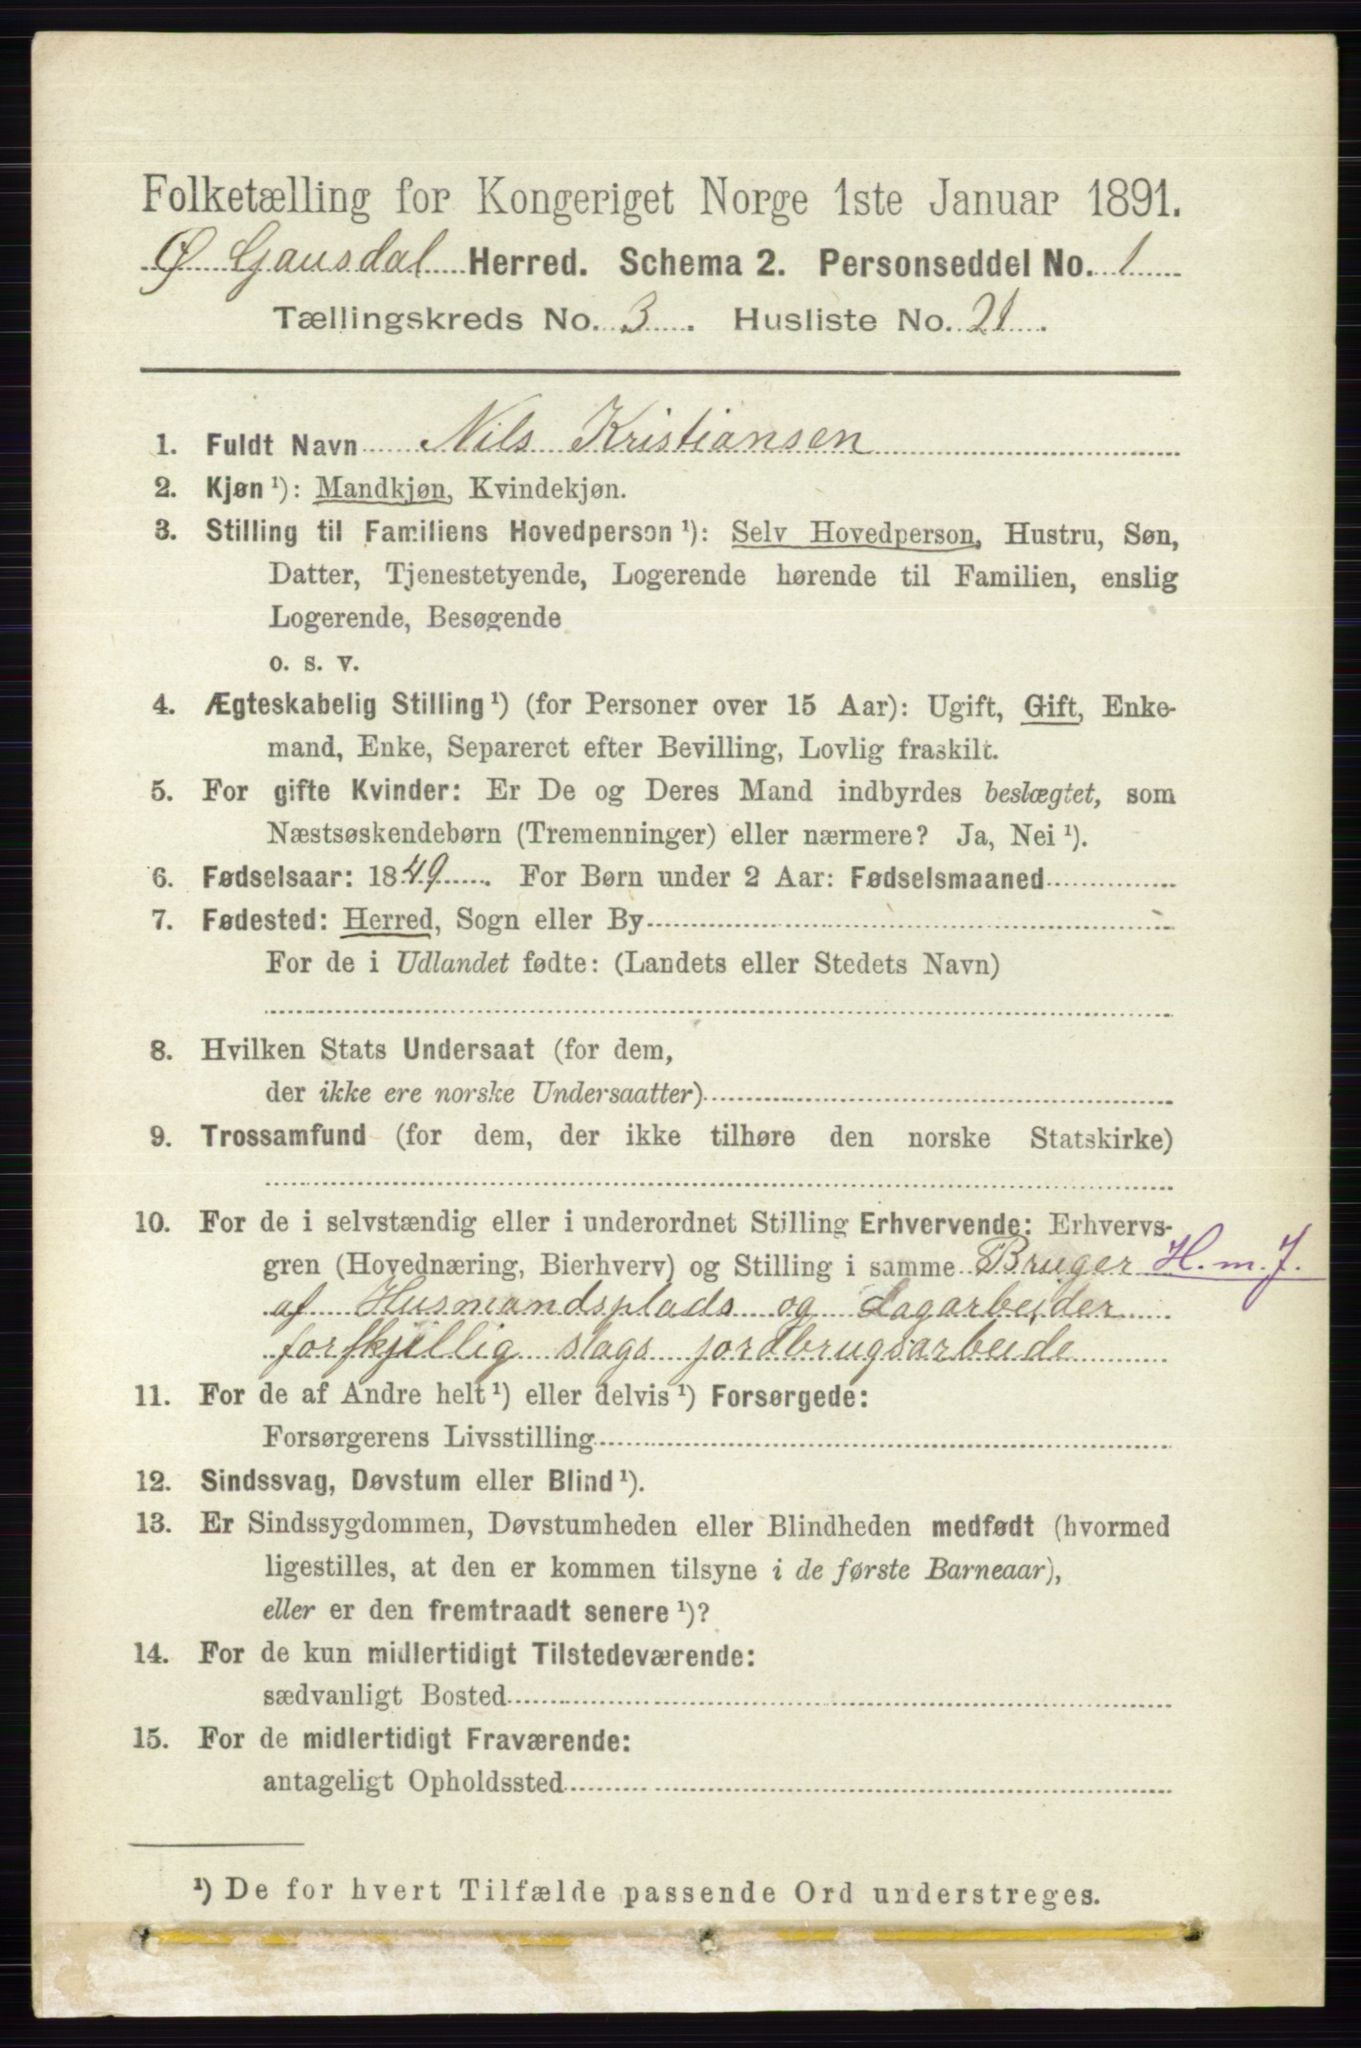 Folketælling for Kongeriget Norge 1ste Januar 1891.
Ø Gausdal Herred. Schema 2. Personseddel No. 1
Tællingskreds No. 3. Husliste No. 21.
1. Fuldt Navn Nils Kristiansen
2. Kjøn ¹): Mandkjøn, Kvindekjøn.
3. Stilling til Familiens Hovedperson ¹): Selv Hovedperson, Hustru, Søn,
Datter, Tjenestetyende, Logerende hørende til Familien, enslig
Logerende, Besøgende
o. s. v.
4. Ægteskabelig Stilling ¹) (for Personer over 15 Aar): Ugift, Gift, Enke-
mand, Enke, Separeret efter Bevilling, Lovlig fraskilt.
5. For gifte Kvinder: Er De og Deres Mand indbyrdes beslægtet, som
Næstsøskendebørn (Tremenninger) eller nærmere? Ja, Nei ¹).
6. Fødselsaar: 1849. For Børn under 2 Aar: Fødselsmaaned
7. Fødested: Herred, Sogn eller By
For de i Udlandet fødte: (Landets eller Stedets Navn)
8. Hvilken Stats Undersaat (for dem,
der ikke ere norske Undersaatter)
9. Trossamfund (for dem, der ikke tilhøre den norske Statskirke)
10. For de i selvstændig eller i underordnet Stilling Erhvervende: Erhvervs-
gren (Hovednæring, Bierhverv) og Stilling i samme Bruger H. m. J.
af Husmandsplads og dagarbeider
forskjellig slags jordbrugsarbeide
11. For de af Andre helt ¹) eller delvis ¹) Forsørgede:
Forsørgerens Livsstilling
12. Sindssvag, Døvstum eller Blind ¹).
13. Er Sindssygdommen, Døvstumheden eller Blindheden medfødt (hvormed
ligestilles, at den er kommen tilsyne i de første Barneaar),
eller er den fremtraadt senere ¹)?
14. For de kun midlertidigt Tilstedeværende:
sædvanligt Bosted
15. For de midlertidigt Fraværende:
antageligt Opholdssted
¹) De for hvert Tilfælde passende Ord understreges.